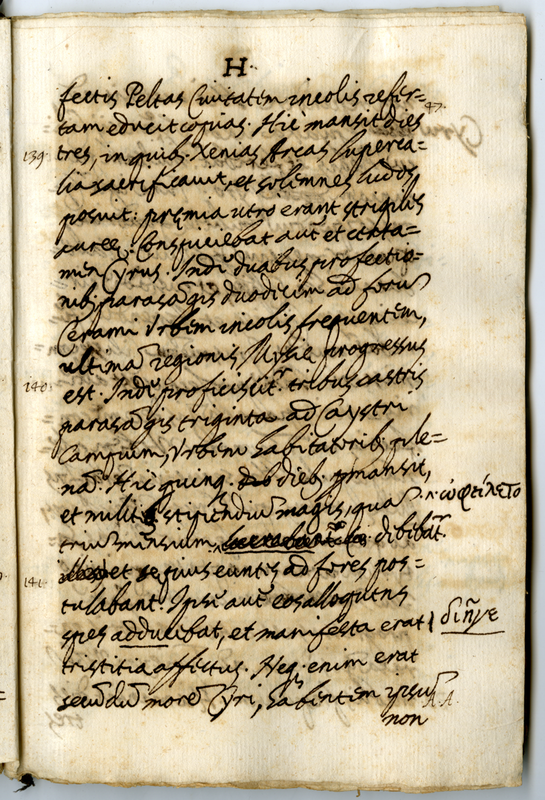 H
fectis Peltas Civitatem incolis refer=
47.
tam educit copias. Hic mansit dies
139 tres, in quib. Xenias Arcas Luperca=
lia sacrificavit, et solemnes ludos
posuit: pręmia utro erant strigiles
aureę. Conspiciebat aut̃ et certa=
men Cyrus. Indè duabus profectio=
nib. parasãgis duodecim ad forũ
Cerami Urbem incolis frequentem,
ultimã regionis Mysię progressus
140 est. Indè proficiscit.r tribus castris
parasãgis triginta ad Caystri
Campum, Urbem habitatorib. ple=
nã. Hic quinq. dieb. pmansit,
et militib. stipendiũ magis, quã ὠφείλετο
triũ mensium, debibat.r
141 et sępius euntes ad fores pos=
tulabant. Ipse aut̃ eos alloquens
spes adducebat, et manifesta erat διῆγε
tristitia affectus. Neq. enim erat
secũdũ morẽ Cyri, habentem ipsũ
A.A.
non